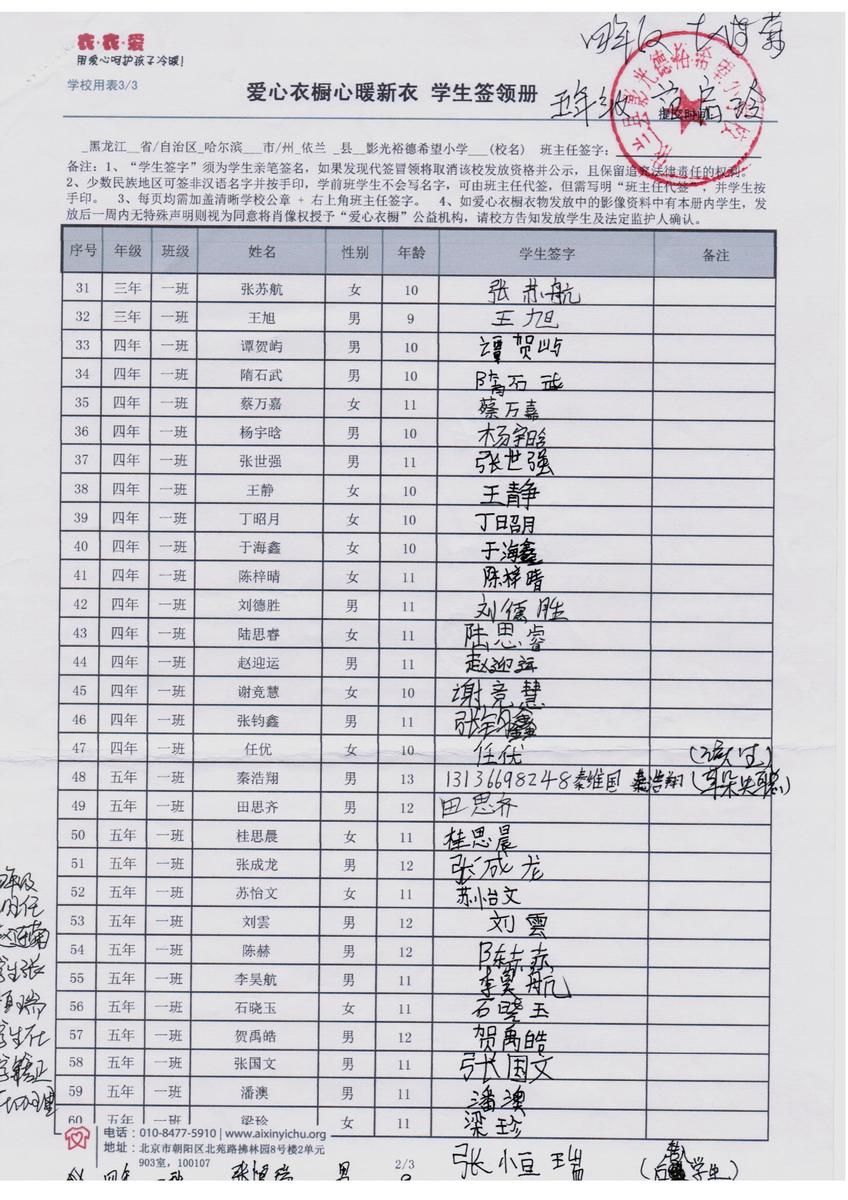 衣·衣·爱
用爱心呵护孩子冷暖!
学校用表3/3
爱心衣橱心暖新衣 学生签领册
提交时间
_黑龙江__省/自治区_哈尔滨___市/州_依兰 _县__影光裕德希望小学___(校名) 班主任签字:
备注:1、“学生签字”须为学生亲笔签名,如果发现代签冒领将取消该校发放资格并公示,且保留追究法律责任的权利。
2、少数民族地区可签非汉语名字并按手印,学前班学生不会写名字,可由班主任代签,但需写明“班主任代签”,并学生按
手印。 3、每页均需加盖清晰学校公章 + 右上角班主任签字。 4、如爱心衣橱衣物发放中的影像资料中有本册内学生,发
放后一周内无特殊声明则视为同意将肖像权授予“爱心衣橱”公益机构,请校方告知发放学生及法定监护人确认。
序号 年级 班级 姓名 性别 年龄 学生签字 备注
31 三年 一班 张苏航 女 10 张苏航
32 三年 一班 王旭 男 9 王旭
33 四年 一班 谭贺屿 男 10 谭贺屿
34 四年 一班 隋石武 男 10 隋石武
35 四年 一班 蔡万嘉 女 11 蔡万嘉
36 四年 一班 杨宇晗 男 10 杨宇晗
37 四年 一班 张世强 男 11 张世强
38 四年 一班 王静 女 10 王静
39 四年 一班 丁昭月 女 10 丁昭月
40 四年 一班 于海鑫 女 10 于海鑫
41 四年 一班 陈梓晴 女 11 陈梓晴
42 四年 一班 刘德胜 男 11 刘德胜
43 四年 一班 陆思睿 女 11 陆思睿
44 四年 一班 赵迎运 男 11 赵迎运
45 四年 一班 谢竞慧 女 10 谢竞慧
46 四年 一班 张钧鑫 男 11 张钧鑫
47 四年 一班 任优 女 10 任优
48 五年 一班 秦浩翔 男 13 13136698248 秦维国 秦浩翔 (耳朵失聪)
49 五年 一班 田思齐 男 12 田思齐
50 五年 一班 桂思晨 女 11 桂思晨
51 五年 一班 张成龙 男 12 张成龙
52 五年 一班 苏怡文 女 11 苏怡文
53 五年 一班 刘雲 男 12 刘雲
54 五年 一班 陈赫 男 12 陈赫
55 五年 一班 李昊航 男 11 李昊航
56 五年 一班 石晓玉 女 11 石晓玉
57 五年 一班 贺禹皓 男 12 贺禹皓
58 五年 一班 张国文 男 11 张国文
59 五年 一班 潘澳 男 11 潘澳
60 五年 一班 梁珍 女 11 梁珍
电话:010-8477-5910 | www.aixinyichu.org
地址:北京市朝阳区北苑路拂林园8号楼2单元
903室,100107
2/3